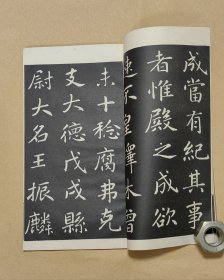 成當有紀其事
者惟殿之成欲
速不皇擇木曾
未十稔腐弗克
支大德戊戌縣
尉大名王振麟